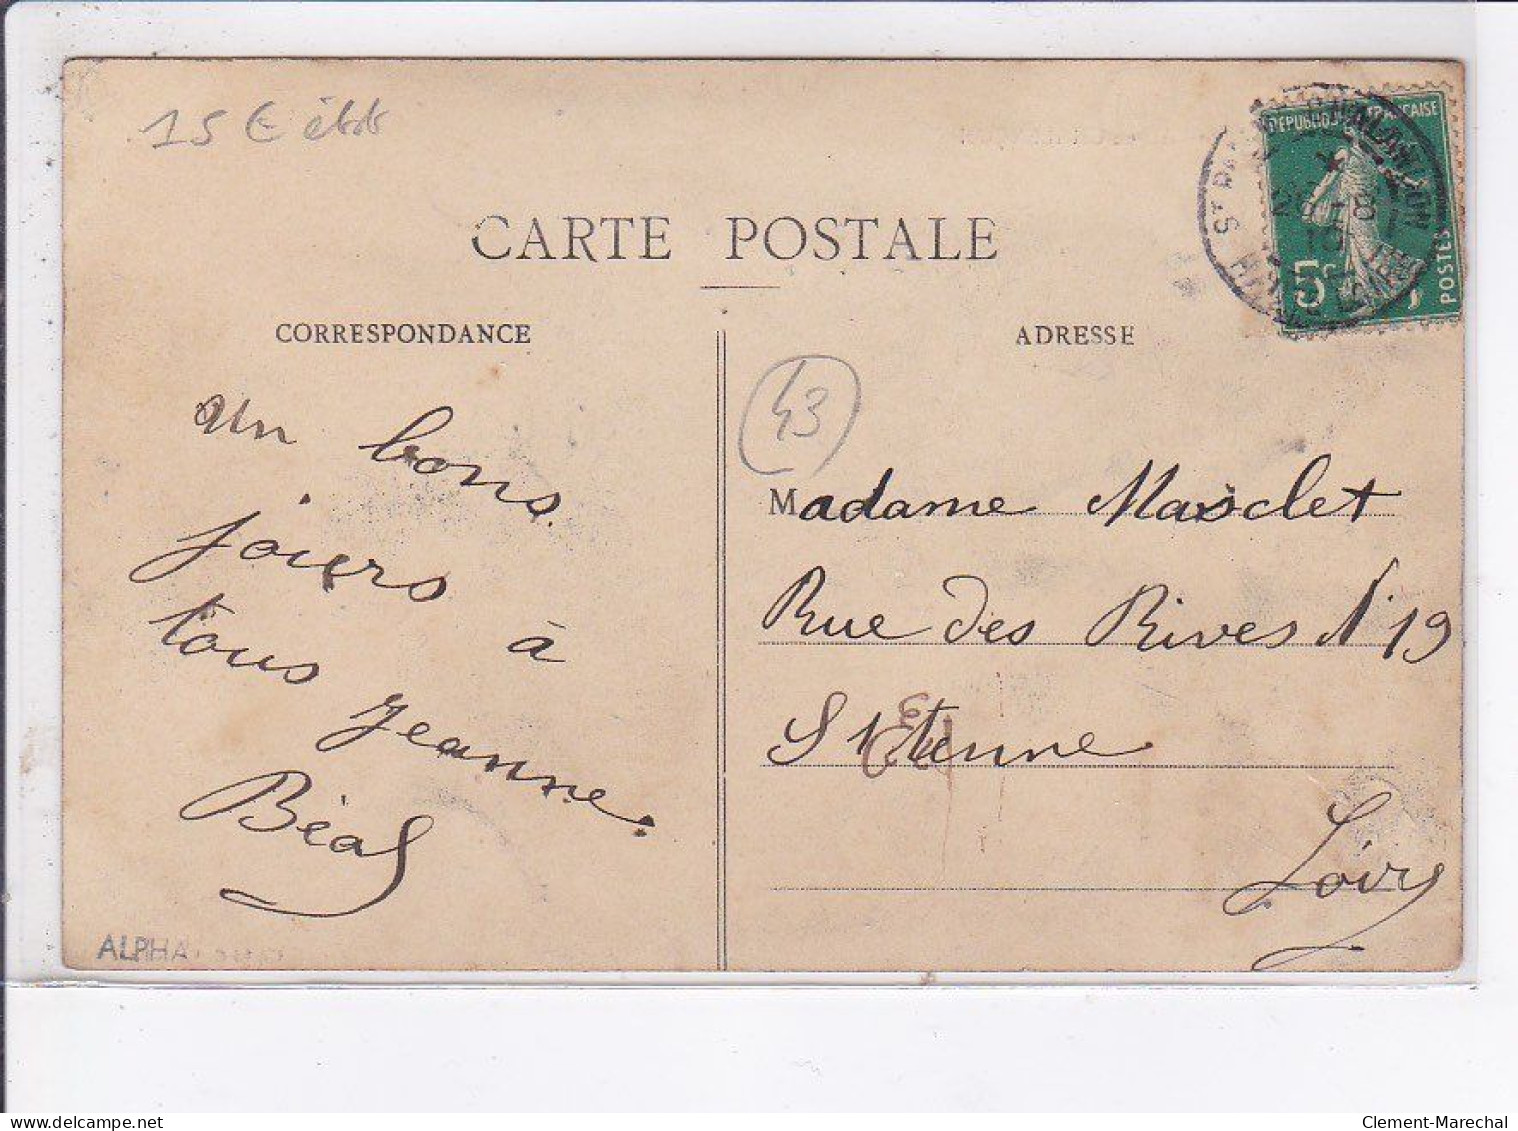 15 €
CARTE POSTALE
RÉPUBLIQUE FRANÇAISE
5c
POSTES
CORRESPONDANCE
ADRESSE
43
un bons
joiers à
tous Jeanne
Béal
Madame Masclet
Rue des Rives N 19
St Etienne
Loire
ALPHA
delcampe.net
Clement-Marechal